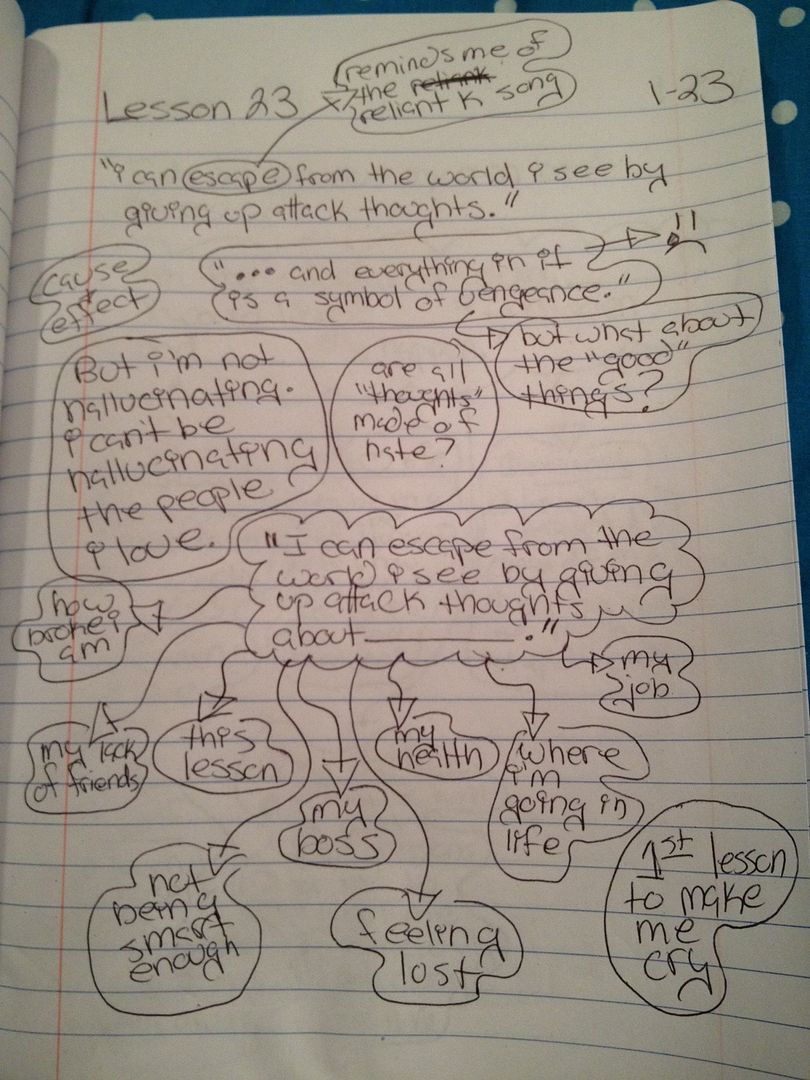 reminds me of
the reliank
reliant k song
Lesson 23
1-23
"i can escape from the world i see by
giving up attack thoughts."
cause
effect
"... and everything in it
is a symbol of vengeance."
but what about
the "good"
things?
But i'm not
hallucinating.
i can't be
hallucinating
the people
i love.
are all
"thoughts"
made of
hate?
"I can escape from the
world i see by giving
up attack thoughts
about_______."
how
broke i
am
my
job
my lack
of friends
this
lesson
my
health
where
i'm
going in
life
my
boss
not
being
smart
enough
feeling
lost
1st lesson
to make
me
cry